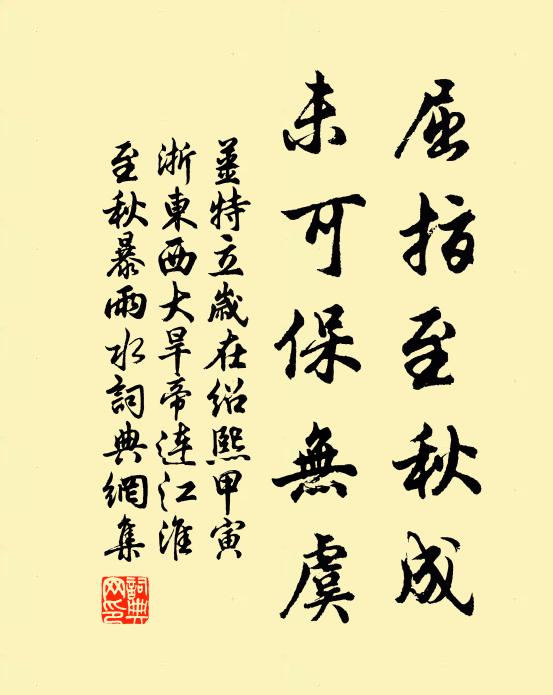 屈指至秋成
未可保無虞
薑特立歲在紹熙甲寅
浙東西大旱帝連江淮
至秋暴雨水詞典網集
詞典
网印